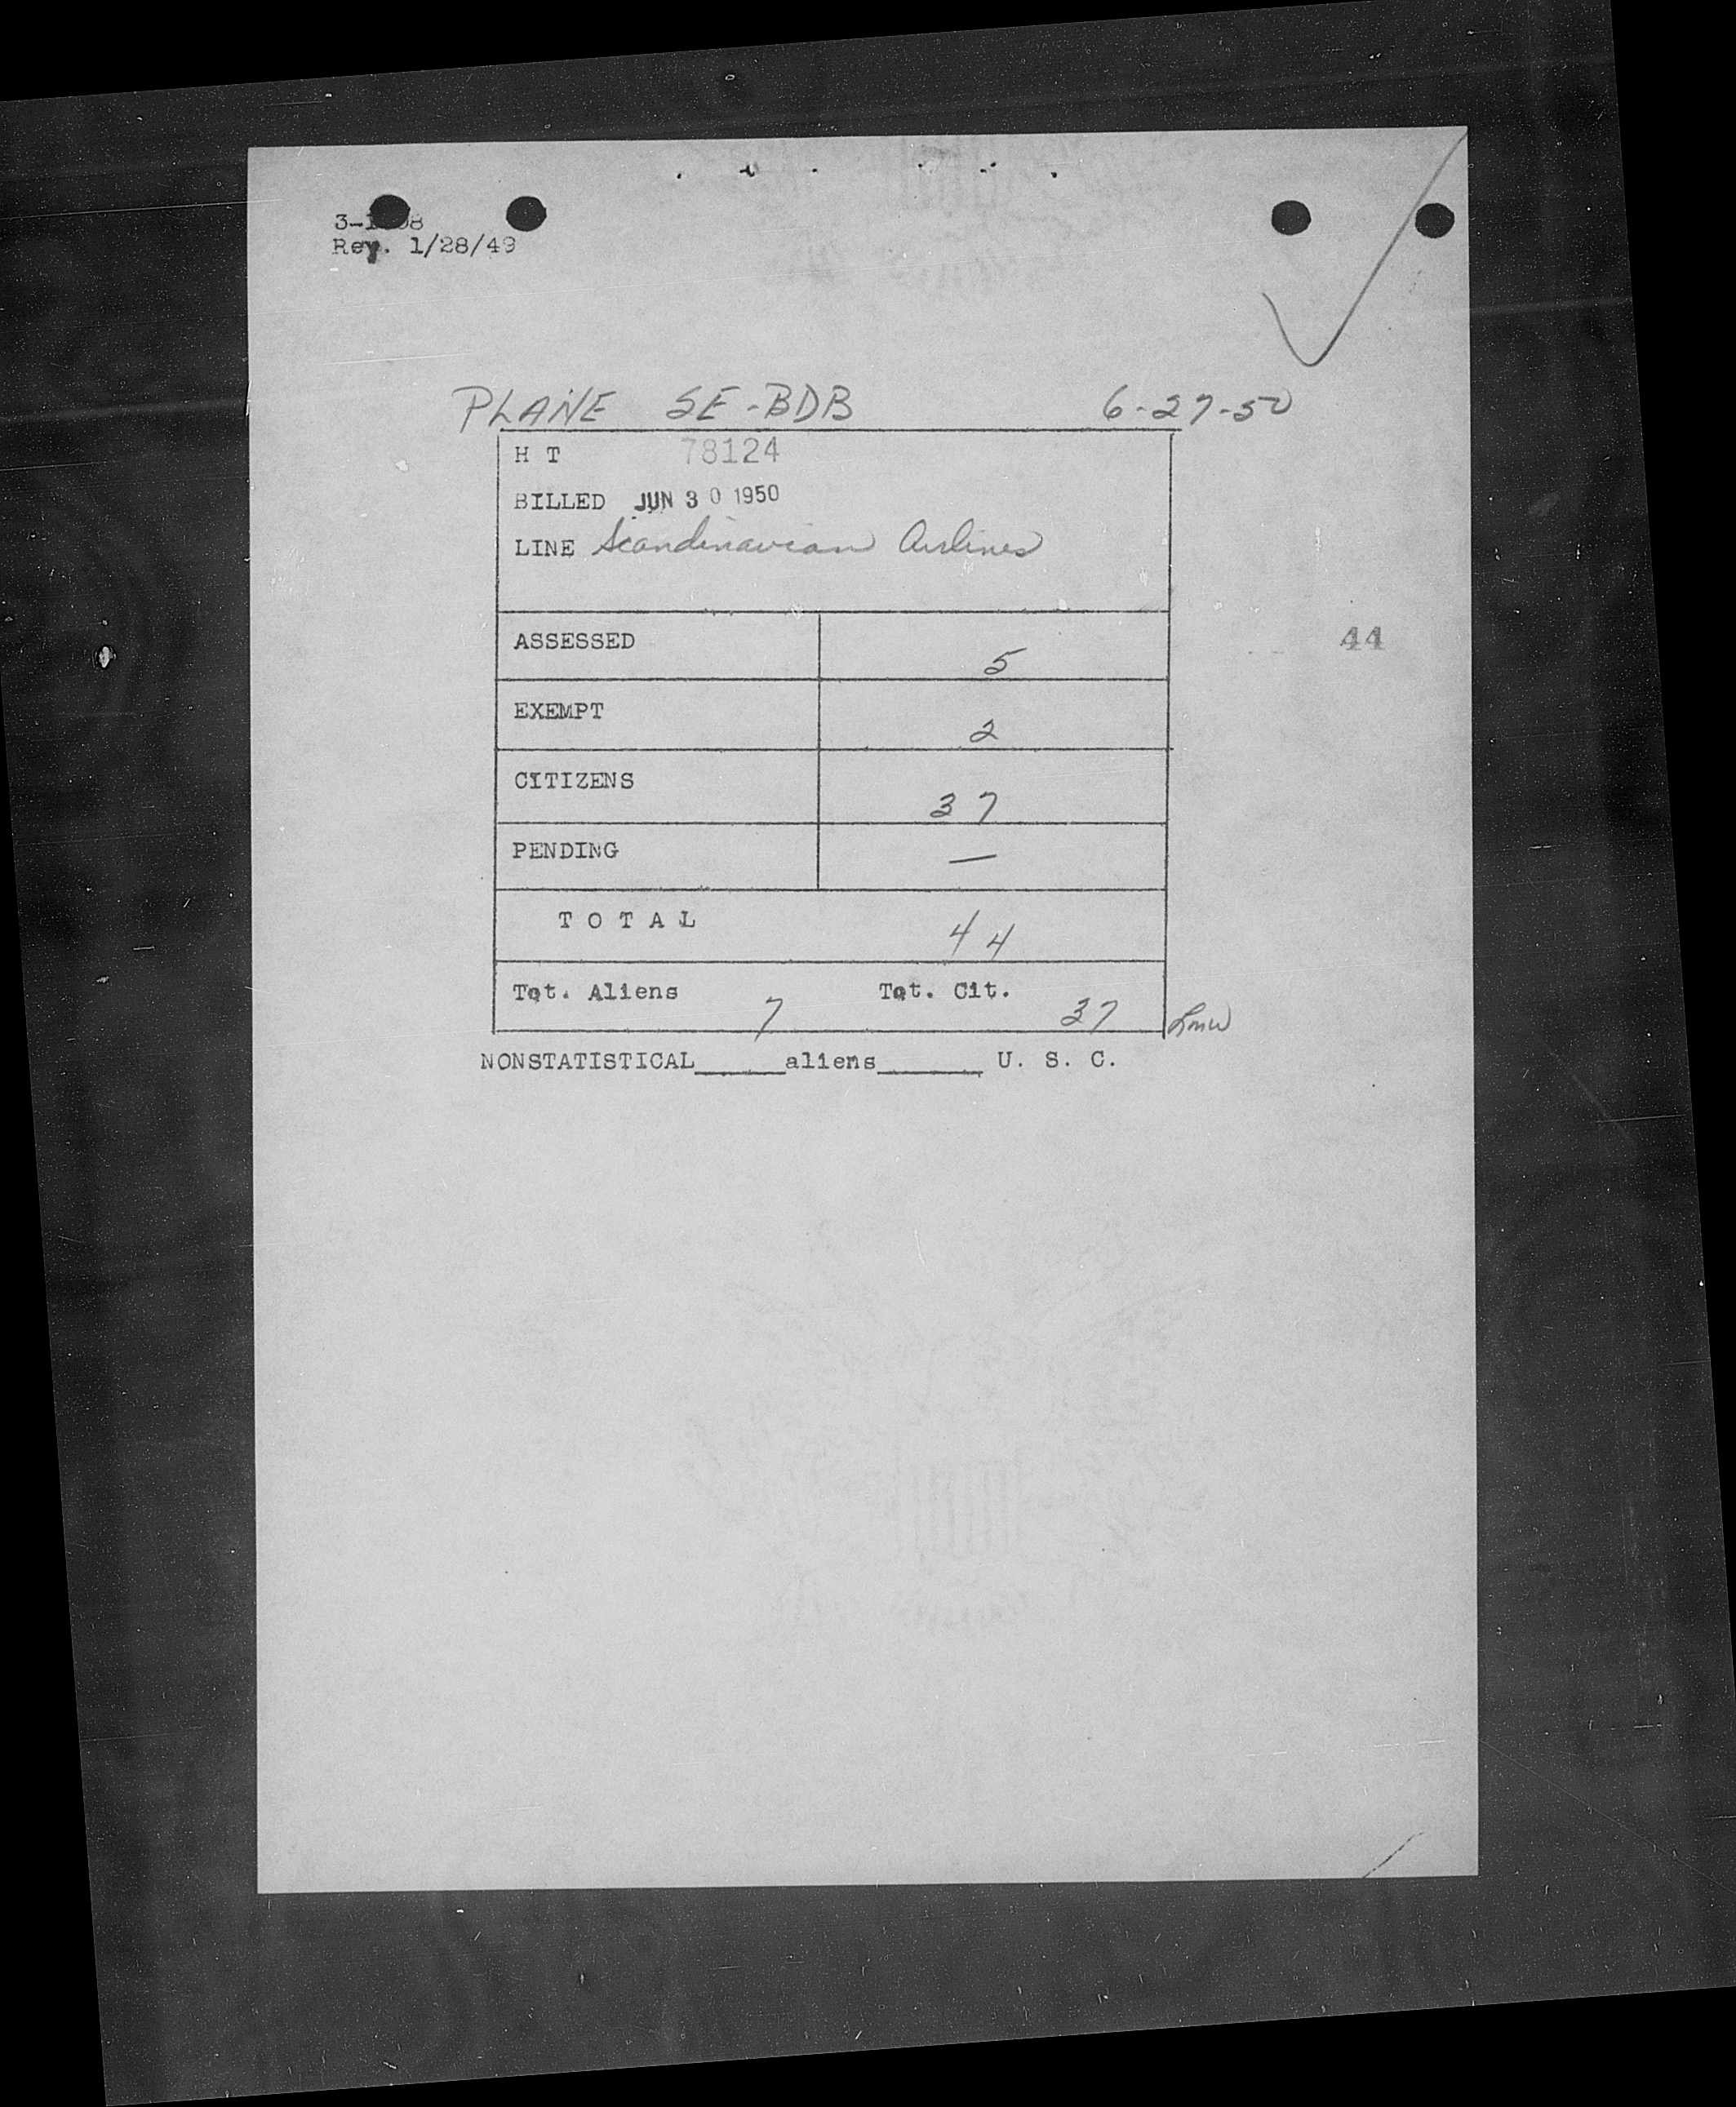 Rev. 1/28/49
PLANE SE-BDB 6-27-50
H T 78124
BILLED JUN 30 1950
LINE Scandinavian Airlines
ASSESSED 5
44
EXEMPT 2
CITIZENS 37
PENDING —
T O T A L 44
Tot. Aliens 7 Tot. Cit. 37
NONSTATISTICAL_____aliens______ U. S. C.